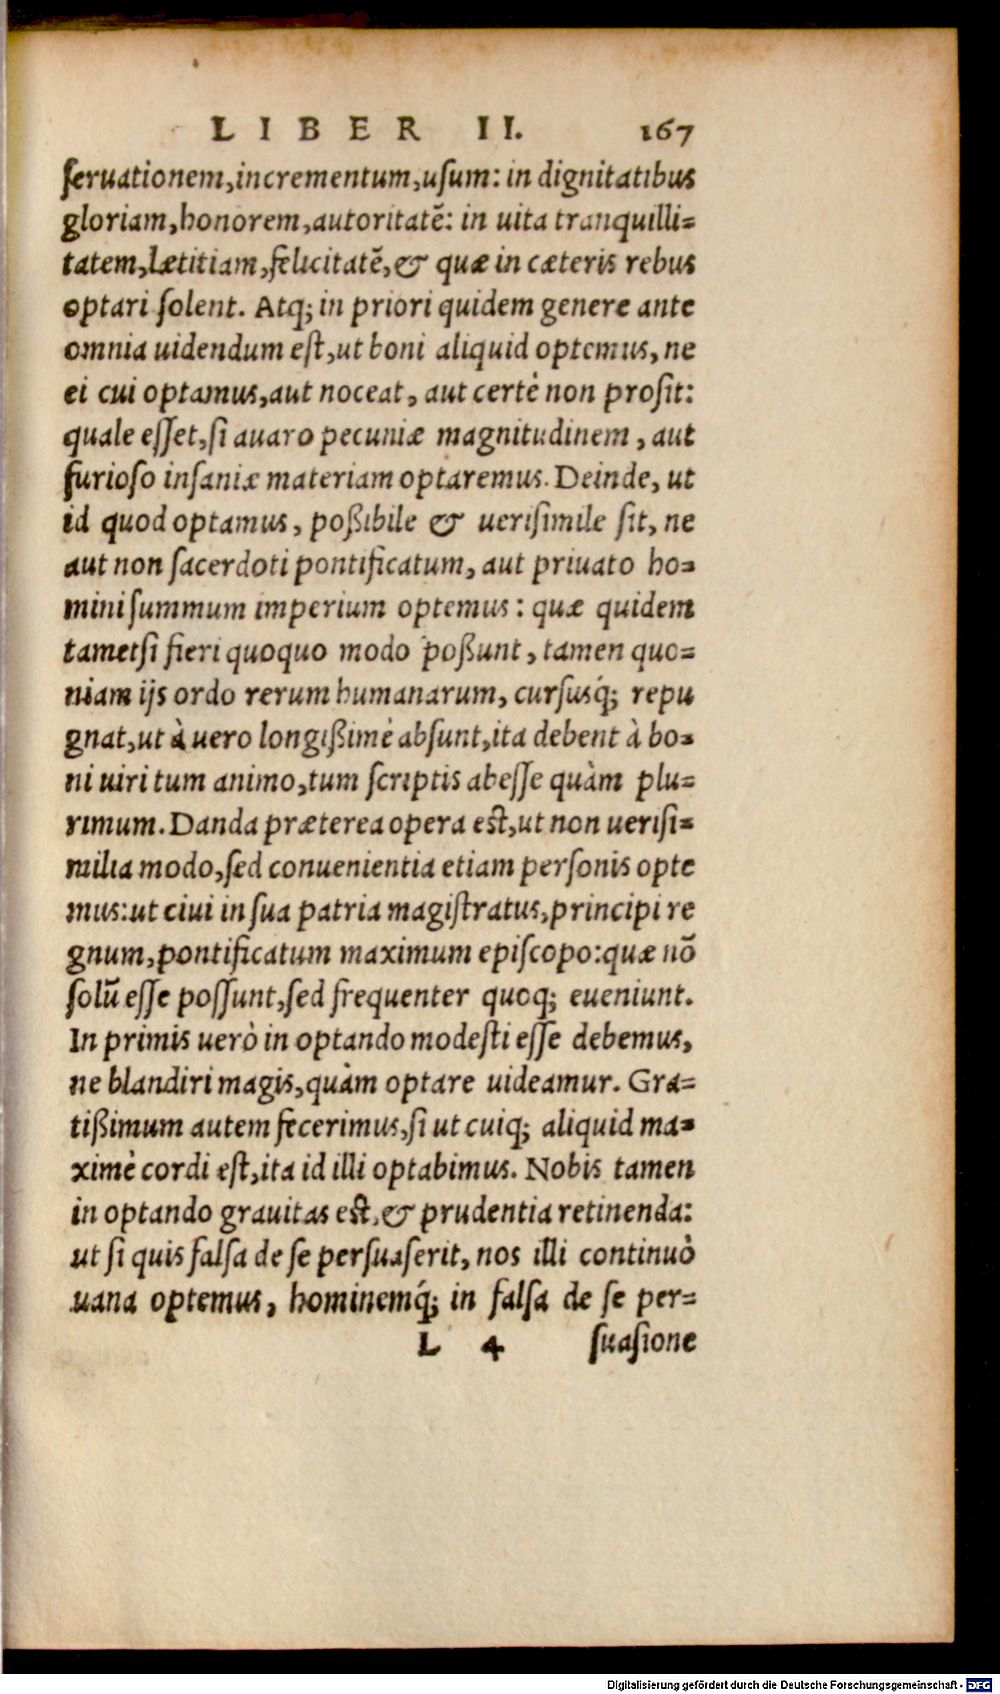 LIBER II. 167
ſeruationem,incrementum,uſum: in dignitatibus
gloriam,honorem,autoritatē: in uita tranquilli=
tatem,lætitiam,felicitatē,& quæ in cæteris rebus
optari ſolent. Atq; in priori quidem genere ante
omnia uidendum eſt,ut boni aliquid optemus, ne
ei cui optamus,aut noceat, aut certè non proſit:
quale eſſet,ſi auaro pecuniæ magnitudinem, aut
furioſo inſaniæ materiam optaremus. Deinde, ut
id quod optamus, poßibile & ueriſimile ſit, ne
aut non ſacerdoti pontificatum, aut priuato ho=
mini ſummum imperium optemus: quæ quidem
tametſi fieri quoquo modo poßunt, tamen quo=
niam ijs ordo rerum humanarum, curſusq́; repu
gnat,ut à uero longißimè abſunt,ita debent à bo=
ni uiri tum animo,tum ſcriptis abeſſe quàm plu=
rimum. Danda præterea opera eſt,ut non ueriſi=
milia modo,ſed conuenientia etiam perſonis opte
mus:ut ciui in ſua patria magiſtratus,principi re
gnum,pontificatum maximum epiſcopo:quæ nō
ſolū eſſe poſſunt,ſed frequenter quoq; eueniunt.
In primis uerò in optando modeſti eſſe debemus,
ne blandiri magis,quàm optare uideamur. Gra=
tißimum autem fecerimus,ſi ut cuiq; aliquid ma=
ximè cordi eſt,ita id illi optabimus. Nobis tamen
in optando grauitas eſt,& prudentia retinenda:
ut ſi quis falſa de ſe perſuaſerit, nos illi continuò
uana optemus, hominemq́; in falſa de ſe per=
L 4 ſuaſione
Digitalisierung gefördert durch die Deutsche Forschungsgemeinschaft - DFG